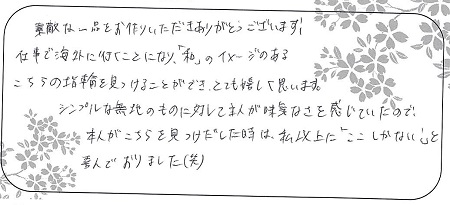 素敵な一品をお作りいただきありがとうございます!
仕事で海外に行くことになり、「私」のイメージのある
こちらの指輪を見つけることができ、とても嬉しく思います。
シンプルな無地のものに対して主人が味気なさを感じていたので、
本人がこちらを見つけだした時は、私以上に「ここしかない!」と
喜んでおりました(笑)